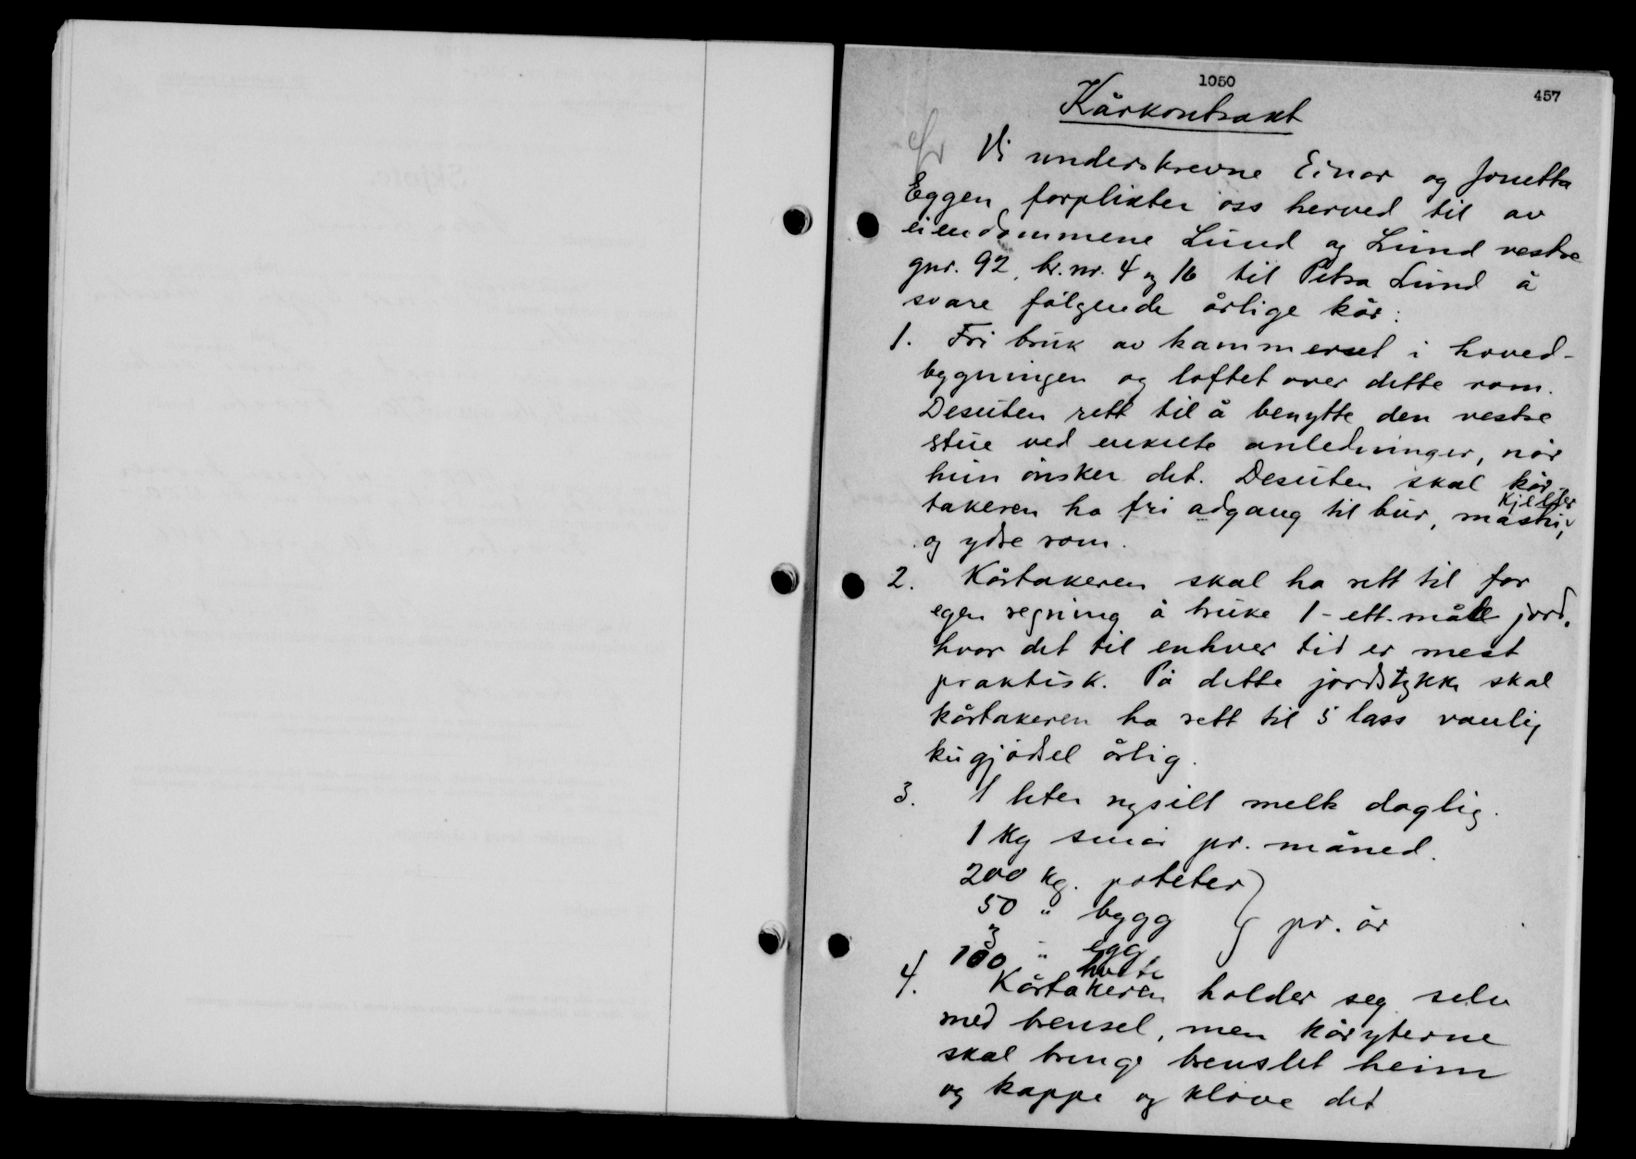 1050
457
Kårkontrakt
Vi underskrevne Einar og Jonetta
Eggen forplikter oss herved til av
eiendommene Lund og Lund vestre
gnr. 92, br.nr. 4 og 16 til Petra Lund å
svare følgende årlige kår:
1. Fri bruk av kammerset i hoved-
bygningen og loftet over dette rom.
Desuten rett til å benytte den vestre
stue ved enkelte anledninger, når
hun ønsker det. Desuten skal kår-
takeren ha fri adgang til bur, kjeller
og ydre rom.
2. Kårtakeren skal ha rett til for
egen regning å bruke 1-ett-mål jord,
hvor det til enhver tid er mest
praktisk. På dette jordstykke skal
kårtakeren ha rett til 5 lass vanlig
kugjødsel årlig.
3. 1 liter nysilt melk daglig.
1 kg smør pr. måned.
200 kg. poteter
50 " bygg } pr. år
3 " egg
100 " hvete
4. Kårtakeren holder seg selv
med brensel, men kåryterne
skal bringe brenslet heim
og kappe og kløve det